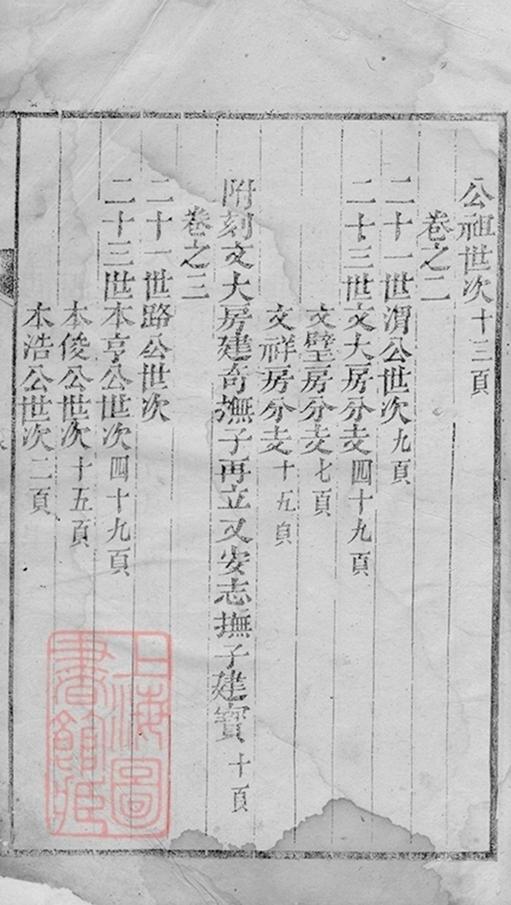 公祖世次十三頁
卷之二
二十一世渭公世次九頁
二十三世文大房分支四十九頁
文璧房分支七頁
文祥房分支十五頁
附刻文大房建奇撫子再立又安志撫子建寶十頁
卷之三
二十一世路公世次
二十三世本亨公世次四十九頁
本俊公世次十五頁
本浩公世次二頁
上海圖
書館藏